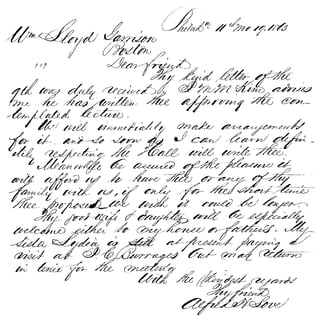 Philada 11th Mo 19. 1863
Wm Lloyd Garrison
Boston
Dear friend
Thy kind letter of the
9th was duly received by J M McKim advises
me he has written thee approving the con-
templated lecture.
We will immediately make arrangements
for it, and so soon as I can learn defin-
itely respecting the Hall will write thee.
Meanwhile be assured of the pleasure it
will afford us to have thee or any of thy
family with us, if only for the short time
thee proposes. We wish it could be longer.
Thy good wife & daughter will be especially
welcome either to my house or father's. My
sister Lydia is still at present paying a
visit at J. C. Burrages but may return
in time for the meeting
With the kindest regards
Thy friend
Alfred H Love